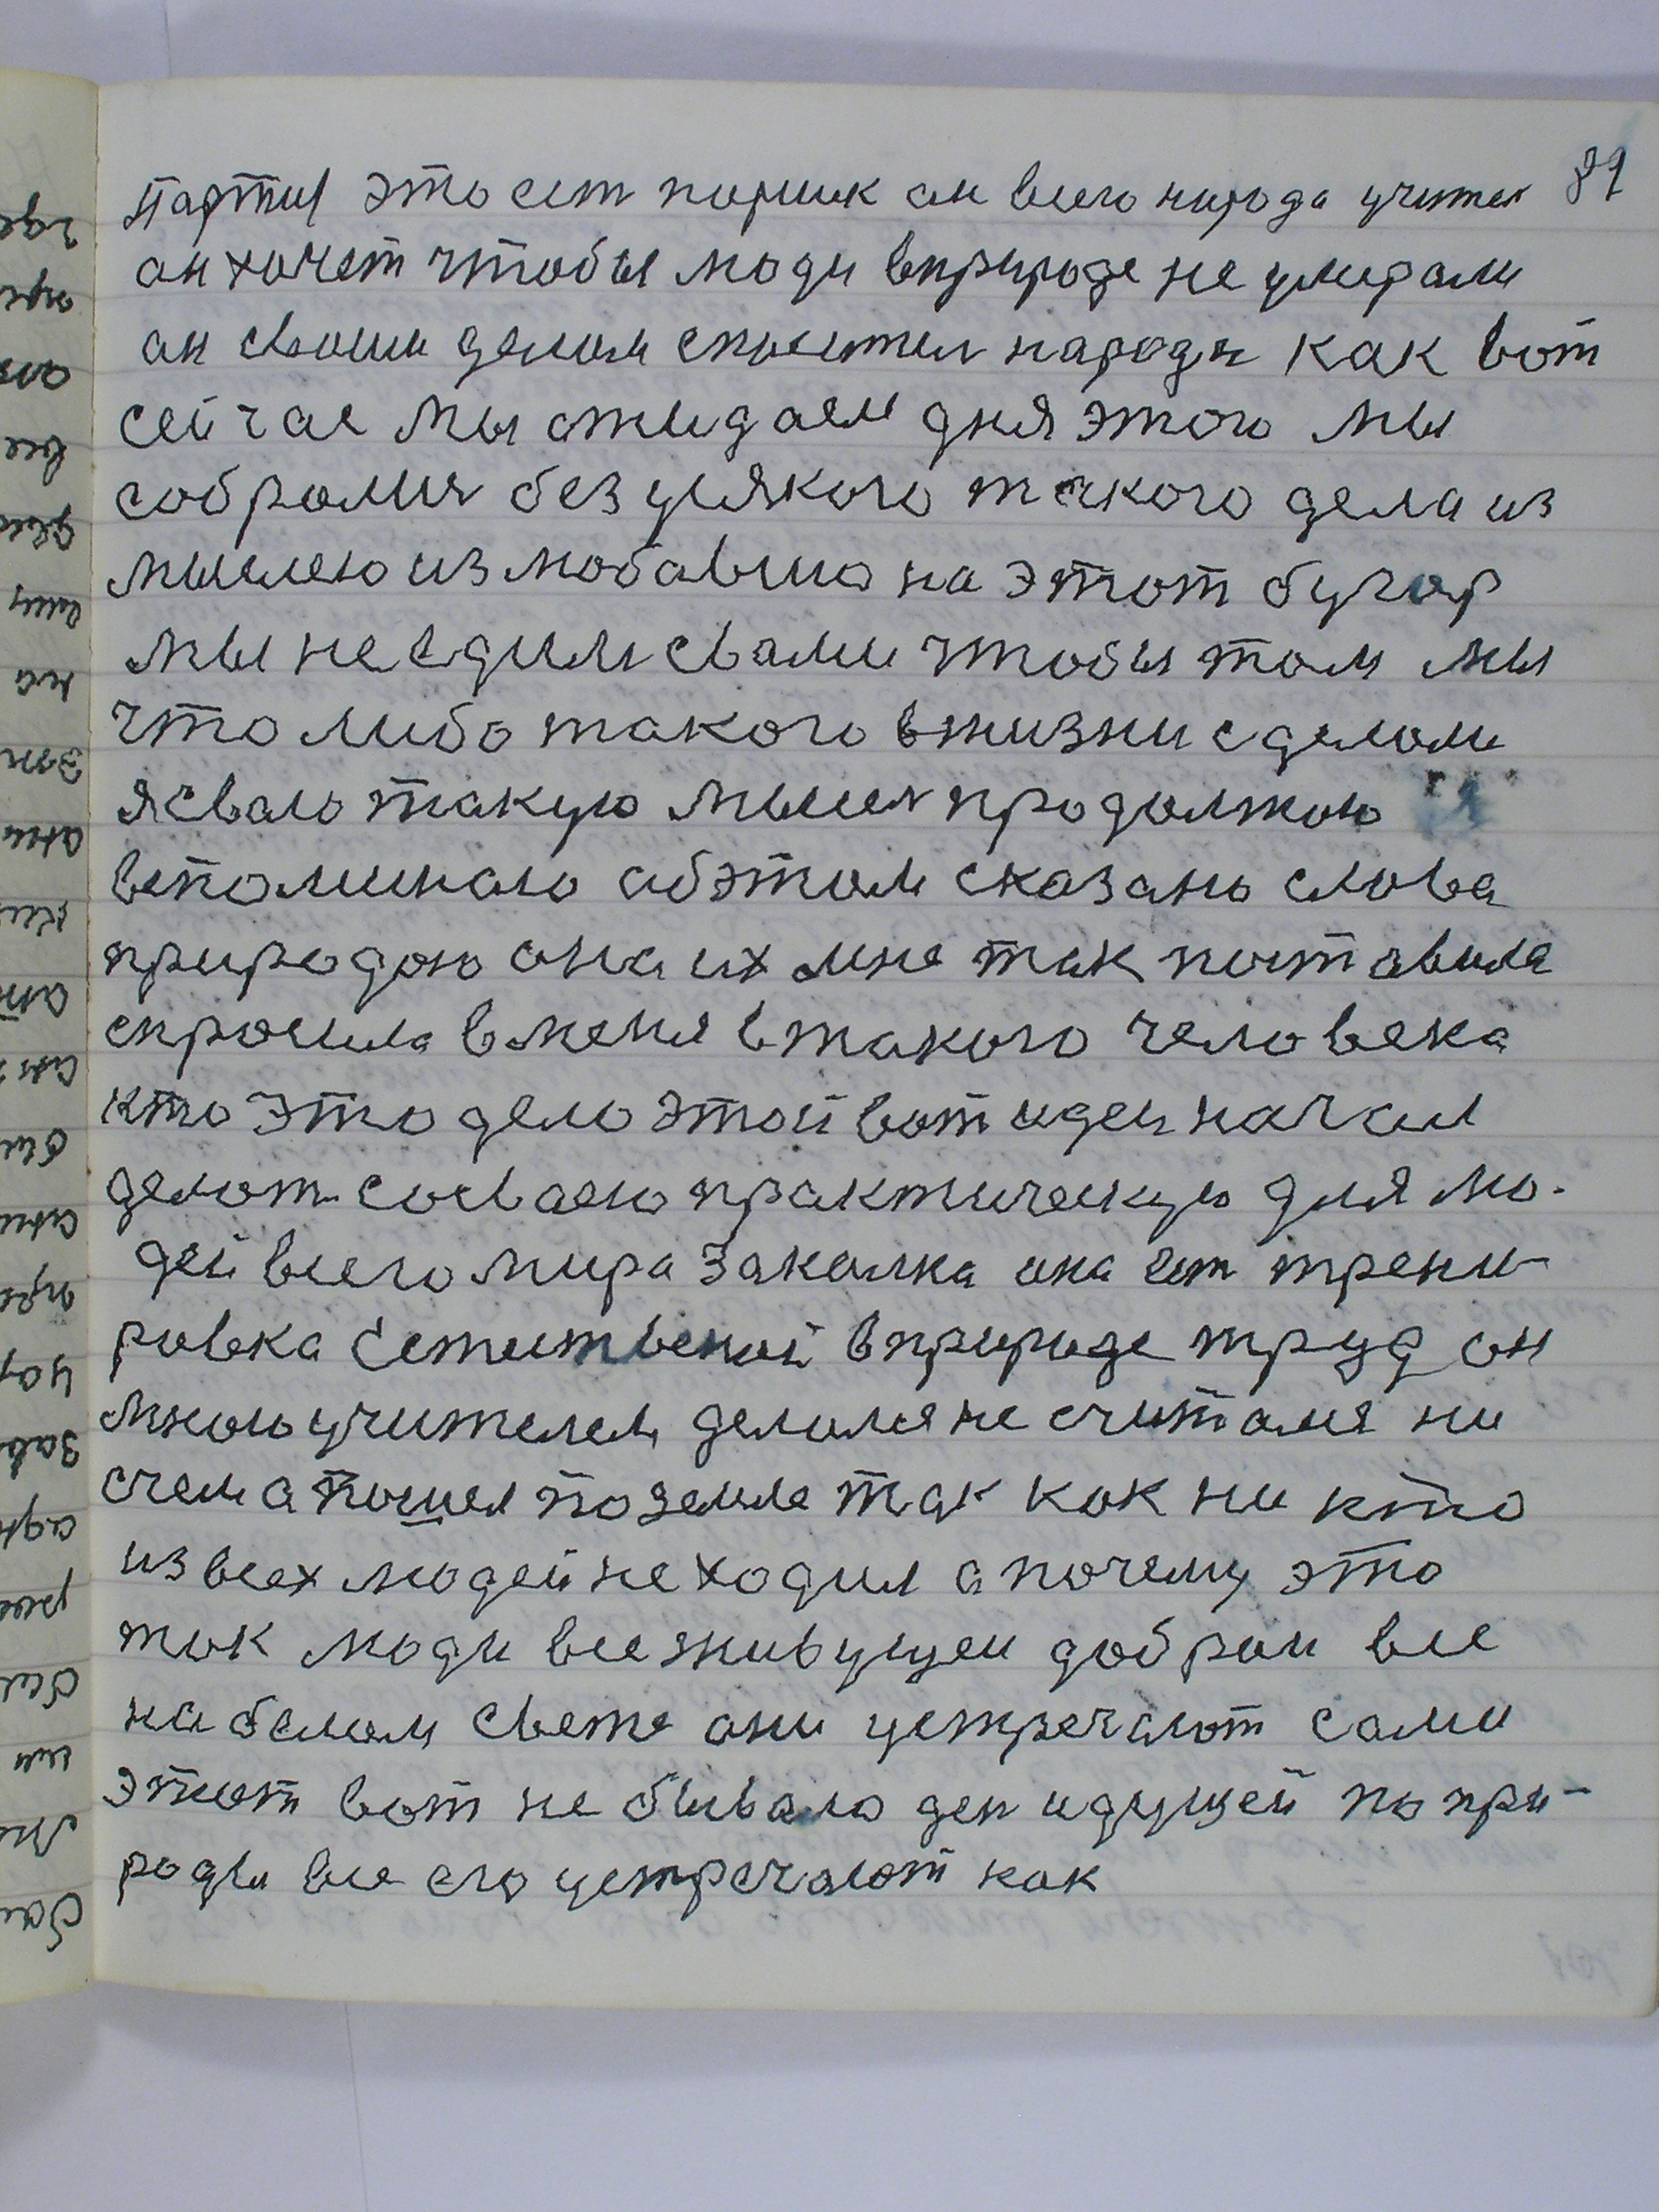 партии это ест поршик он всего народа учител 81
он хочет чтобы люди вприроде не умирали
он своим делом спаситил народы как вот
сейчас мы ожидаем дня этого мы
собролис без усякого такого дела из
мыслею из любавию на этот бугор
мы несдили свами чтобы там мы
что либо такого вжизни сделоли
ясваю такую мысел продолжою я
вспоминаю обэтом сказано слова
природою она их мне так поставила
спросила вменя втакого человека
кто это дело этой вот идеи начал
делот сосваею практическую для лю-
дей всего мира Закалка она ест трени-
ровка Естественой вприроде труд он
мною учителем делолся не считался ни
счем а пошел по земле так как ни кто
из всех людей не ходил а почему это
так люди все живущеи добром все
на белом свете они устречают сами
этот вот не бывало ден идущей по при-
роды все его устречают как